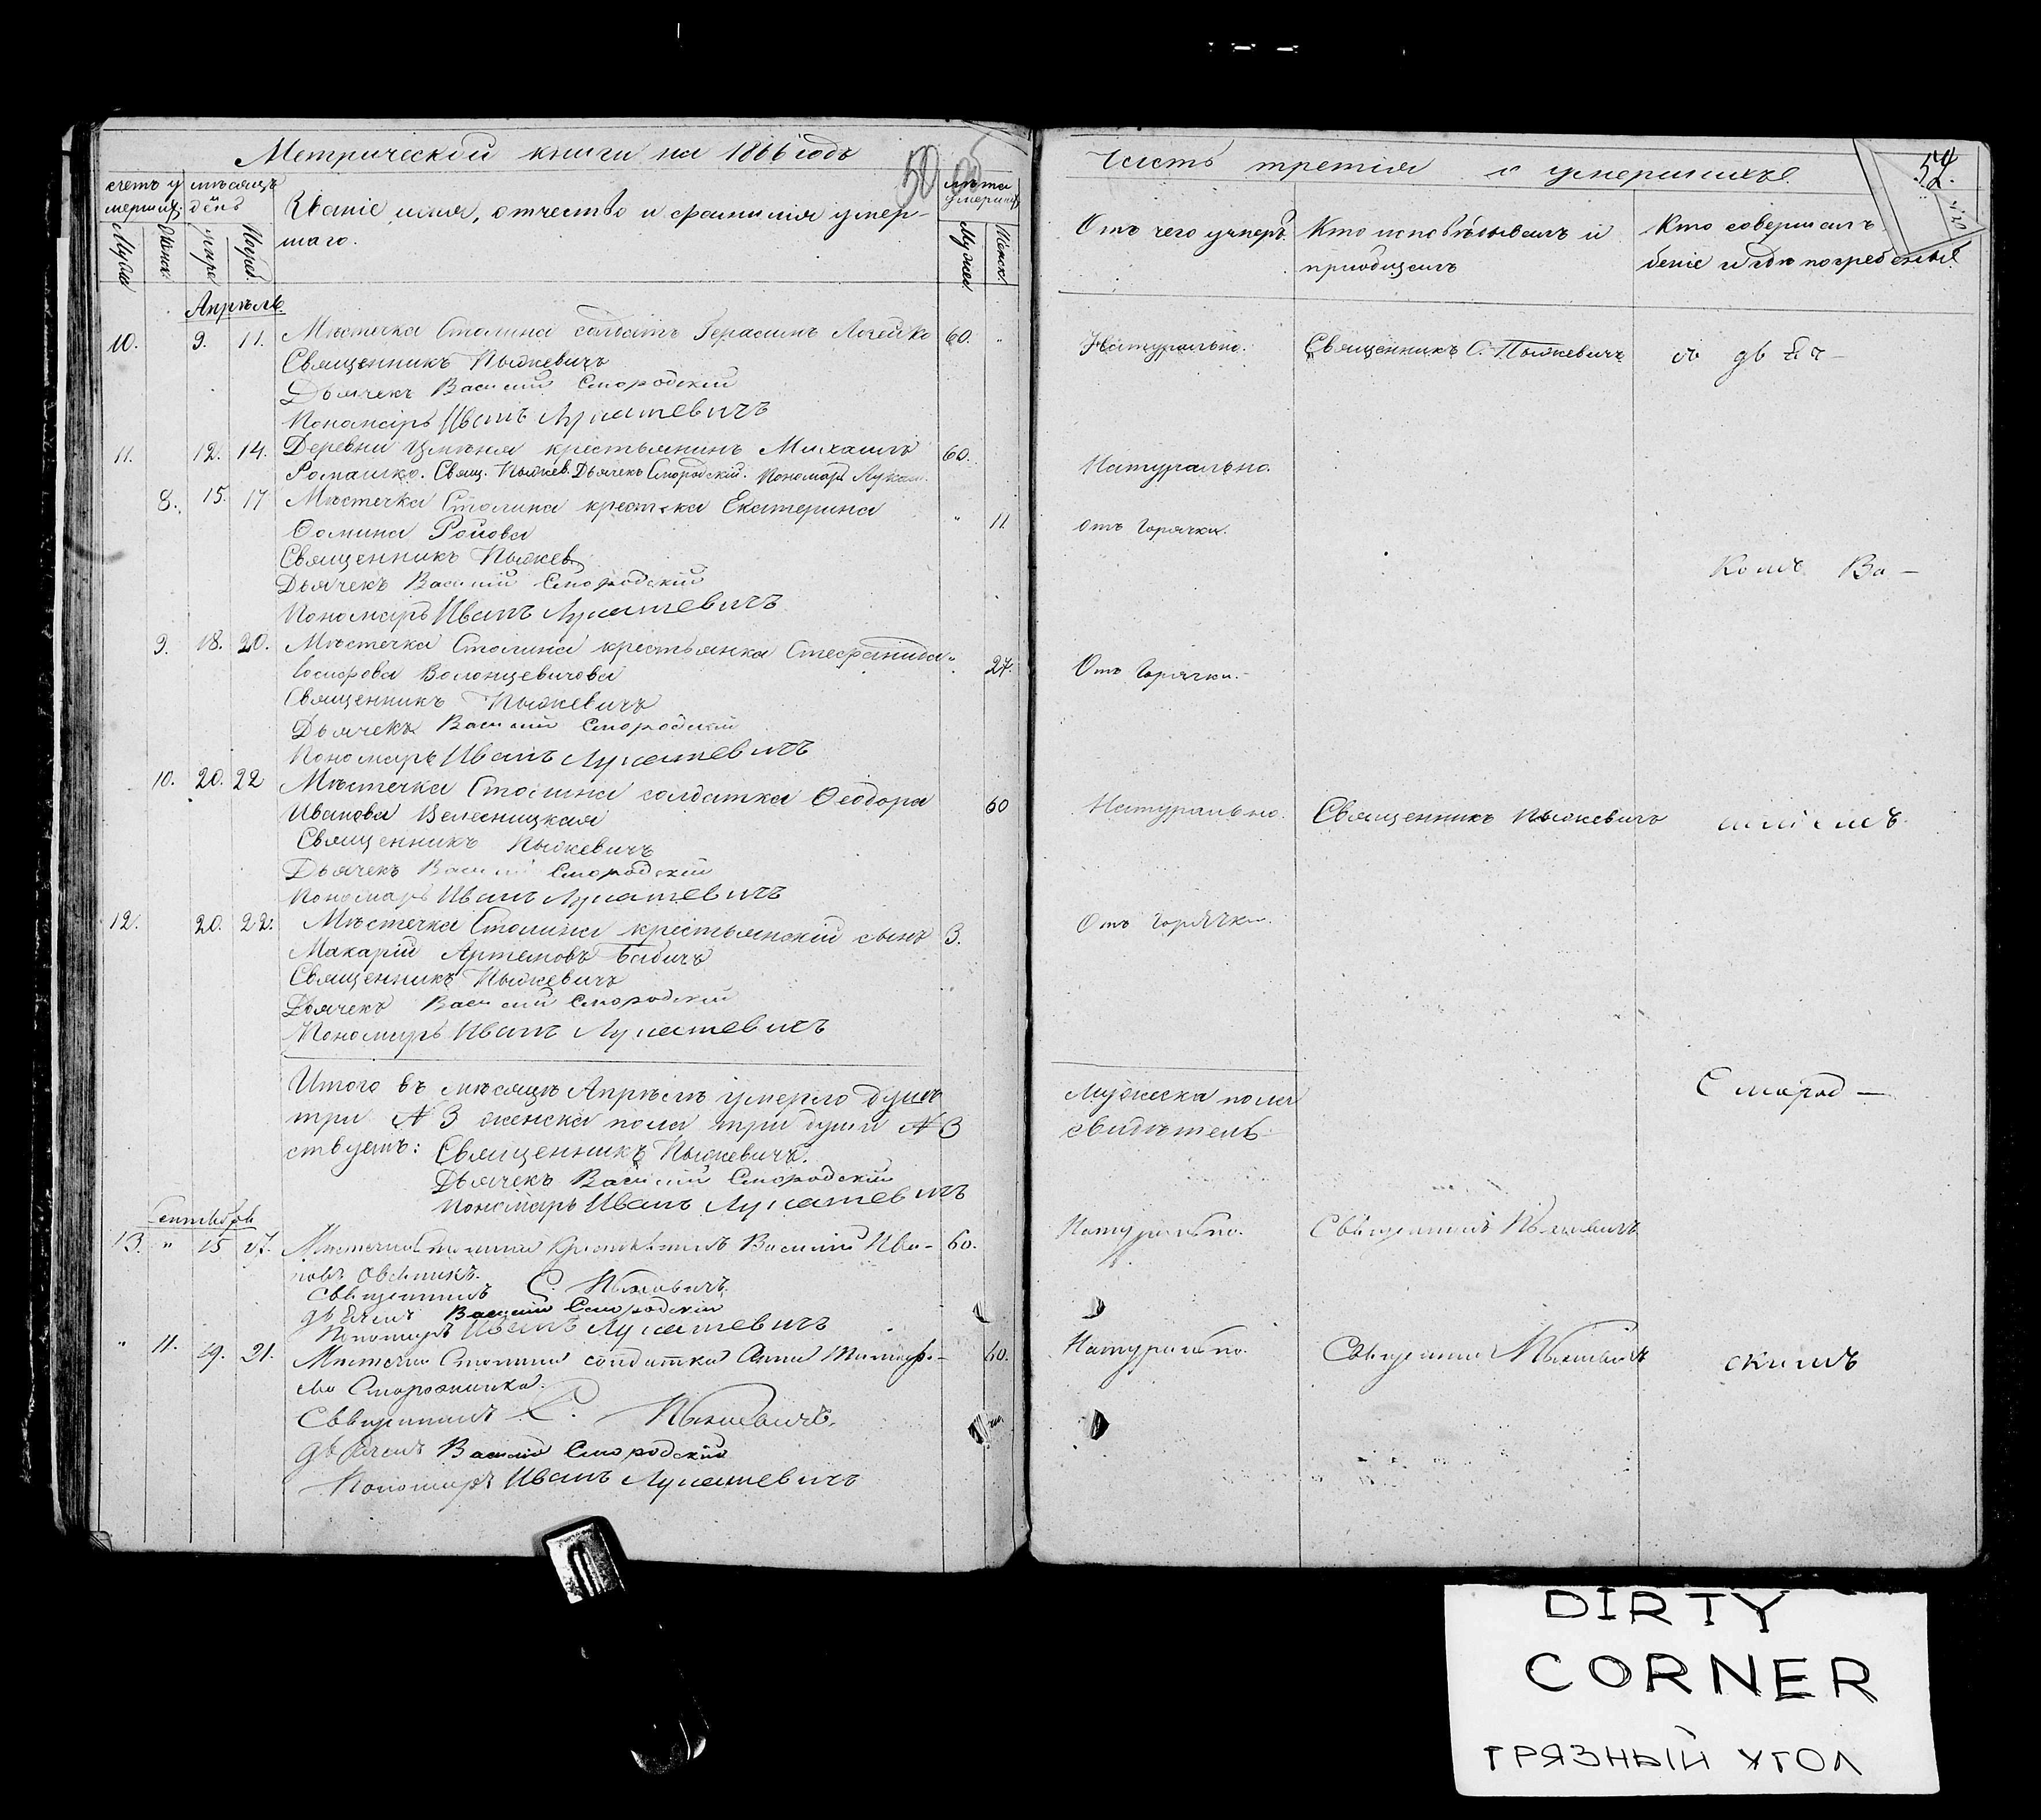 Метрической книги на 1866 годъ
50 об
счетъ у
мершихъ
мѣсяцъ
день
Званіе имя, отчество и фамилія умер-
шаго.
лѣта
умершихъ
Мужеск
Женск
Погреб.
Мужеск
Женск
Апрѣль
10. 9. 11. Мѣстечка Столина солдатъ Герасимъ 60.
Священникъ Пыжевичъ
Дьячекъ Василій Смородскій
Пономарь Иванъ Лукашевичъ
11. 12. 14. Деревни крестьянинъ Михаилъ 60.
Ромашко. Свящ. Пыжев. Дьячекъ Смородскій. Пономарь Лукаш.
8. 15. 17 Мѣстечка Столина крест-ка Екатерина
Ѳомина 11.
Священникъ Пыжев.
Дьячекъ Василій Смородскій
Пономарь Иванъ Лукашевичъ
9. 18. 20. Мѣстечка Столина крестьянка Стефанида
Іосифова Волонцевичова 27.
Священникъ Пыжевичъ
Дьячекъ Василій Смородскій
Пономарь Иванъ Лукашевичъ
10. 20. 22 Мѣстечка Столина солдатка Ѳеодора
Иванова Велесницкая 60
Священникъ Пыжевичъ
Дьячекъ Василій Смородскій
Пономарь Иванъ Лукашевичъ
12. 20. 22. Мѣстечка Столина крестьянскій сынъ 3.
Макарій Артемовъ Бабичъ
Священникъ Пыжевичъ
Дьячекъ Василій Смородскій
Пономарь Иванъ Лукашевичъ
Итого въ мѣсяцѣ Апрѣлѣ умерло душъ
три № 3 женска пола три души № 3
ствуетъ: Священникъ Пыжевичъ.
Дьячекъ Василій Смородскій
Пономарь Иванъ Лукашевичъ
Сентябрь
13. " 15 17. Мѣстечка Столина Василій Ива- 60.
новъ Овсяникъ.
Священникъ С. Пыжевичъ.
дьячекъ Василій Смородскій
Пономарь Иванъ Лукашевичъ
" 11. 19. 21. Мѣстечка Столина солдатка Анна 60.
Священникъ С. Пыжевичъ.
дьячекъ Василій Смородскій
Пономарь Иванъ Лукашевичъ
Часть третія о умершихъ.
52.
Отъ чего умеръ.
Кто исповѣдывалъ и
пріобщалъ
Кто совершалъ
беніе и гдѣ погребены.
Натурально. Священникъ С. Пыжевичъ съ дьяч-
Натурально.
отъ Горячки.
комъ Ва-
Отъ Горячки.
Натурально. Священникъ Пыжевичъ
Отъ Горячки.
Мужеска пола
свидѣтель-
Смород-
Натурально. Священникъ Пыжевичъ
Натурально. Священникъ Пыжевичъ скимъ
DIRTY
CORNER
ГРЯЗНЫЙ УГОЛ